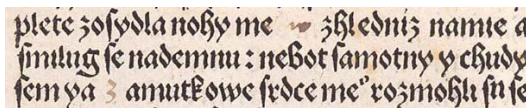 plete zoſydla nohy me zhledniz namie a
ſmilug ſe nademnu : nebot ſamotny y chudy
ſem ya z amutkowe ſrdce meº rozmohli ſu ſe